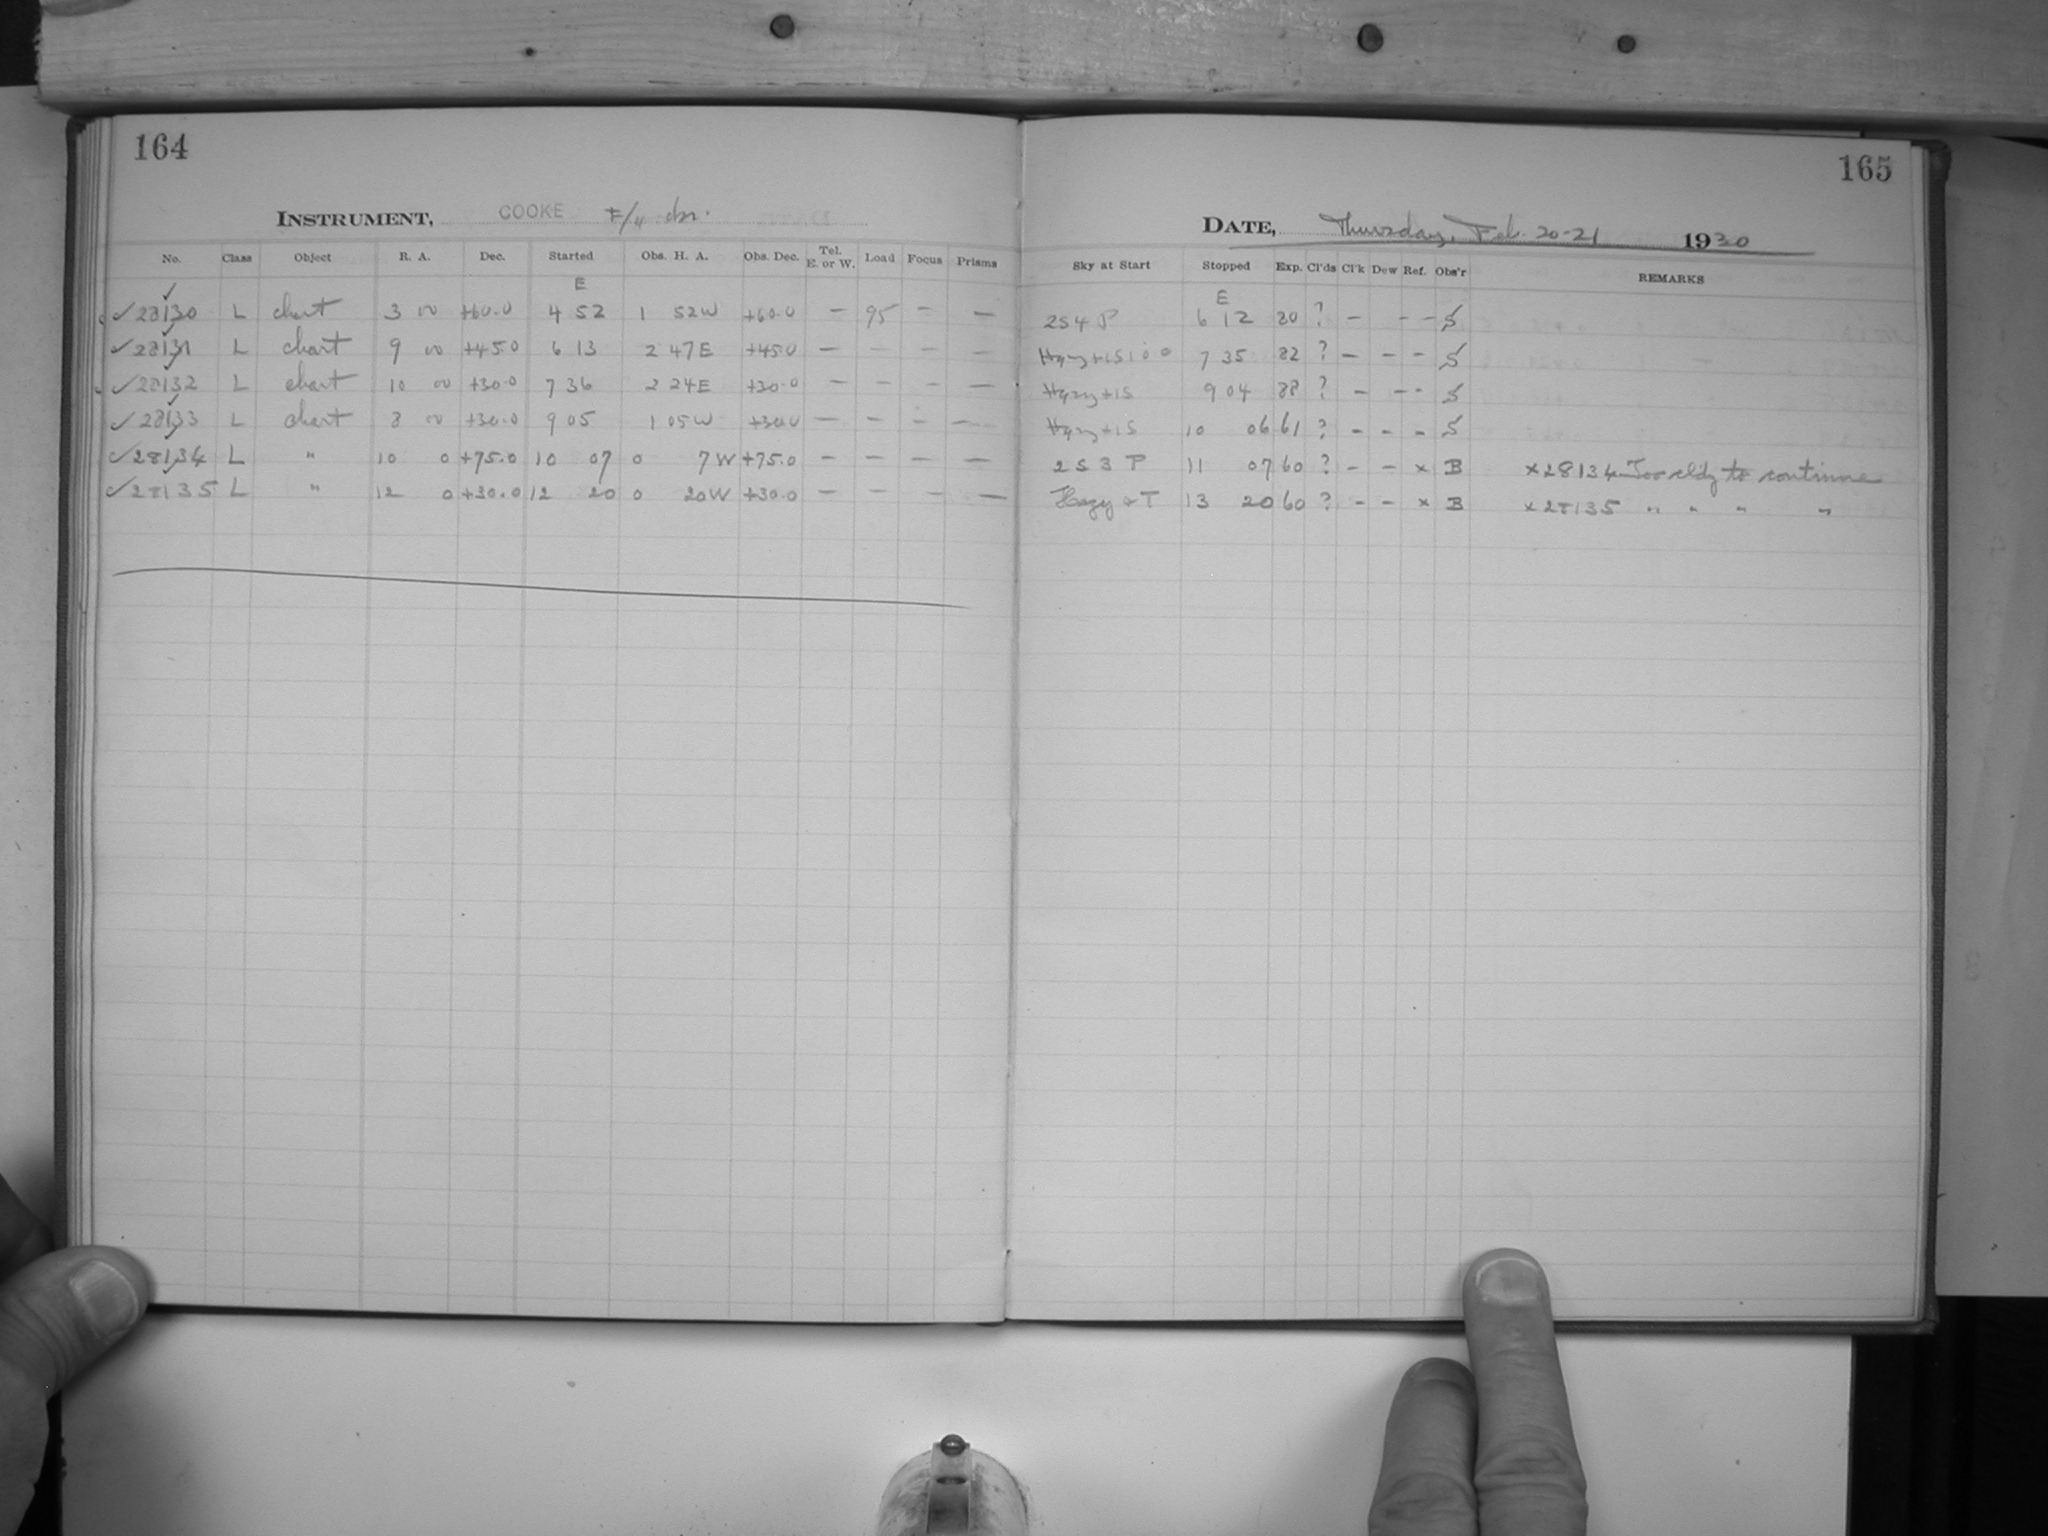 164
INSTRUMENT, COOKE
No. Class Object R. A. Dec. Started Obs. H. A. Obs. Dec. Tel. E. or W. Load Focus Prisms
E
✓28130 L chart 3 00 +60.0 4 52 1 52W +60.0 — 95 — —
✓28131 L chart 9 00 +45.0 6 13 2 47E +45.0 — — — —
✓28132 L chart 10 00 +30.0 7 36 2 24E +30.0 — — — —
✓28133 L chart 8 00 +30.0 9 05 1 05W +30.0 — — — —
✓28134 L " 10 0 +75.0 10 07 0 7W +75.0 — — — —
✓28135 L " 12 0 +30.0 12 20 0 20W +30.0 — — — —
165
DATE, Thursday, Feb. 20-21 1930
Sky at Start Stopped Exp. Cl'ds Cl'k Dew Ref. Obs'r REMARKS
E
2S4P 6 12 80 ? — — — S
Hazy+1S 7 35 82 ? — — — S
Hazy+1S 9 04 88 ? — — — S
Hazy+1S 10 06 61 ? — — — S
2S3P 11 07 60 ? — — x B x28134 Too cldy to continue
Hazy + T 13 20 60 ? — — x B x28135 " " " "